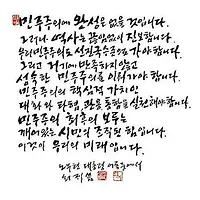 민주주의에 완성은 없을 것입니다.
그러나 역사는 끊임없이 진보합니다.
우리 민주주의도 선진국 수준으로 가야 합니다.
그리고 거기에 만족하지 않고
성숙한 민주주의를 이뤄가야 합니다.
민주주의의 핵심적 가치인
대화와 타협, 관용, 통합을 실천해야 합니다.
민주주의 최후의 보루는
깨어있는 시민의 조직된 힘입니다.
이것이 우리의 미래입니다.
노무현 대통령 어록에서